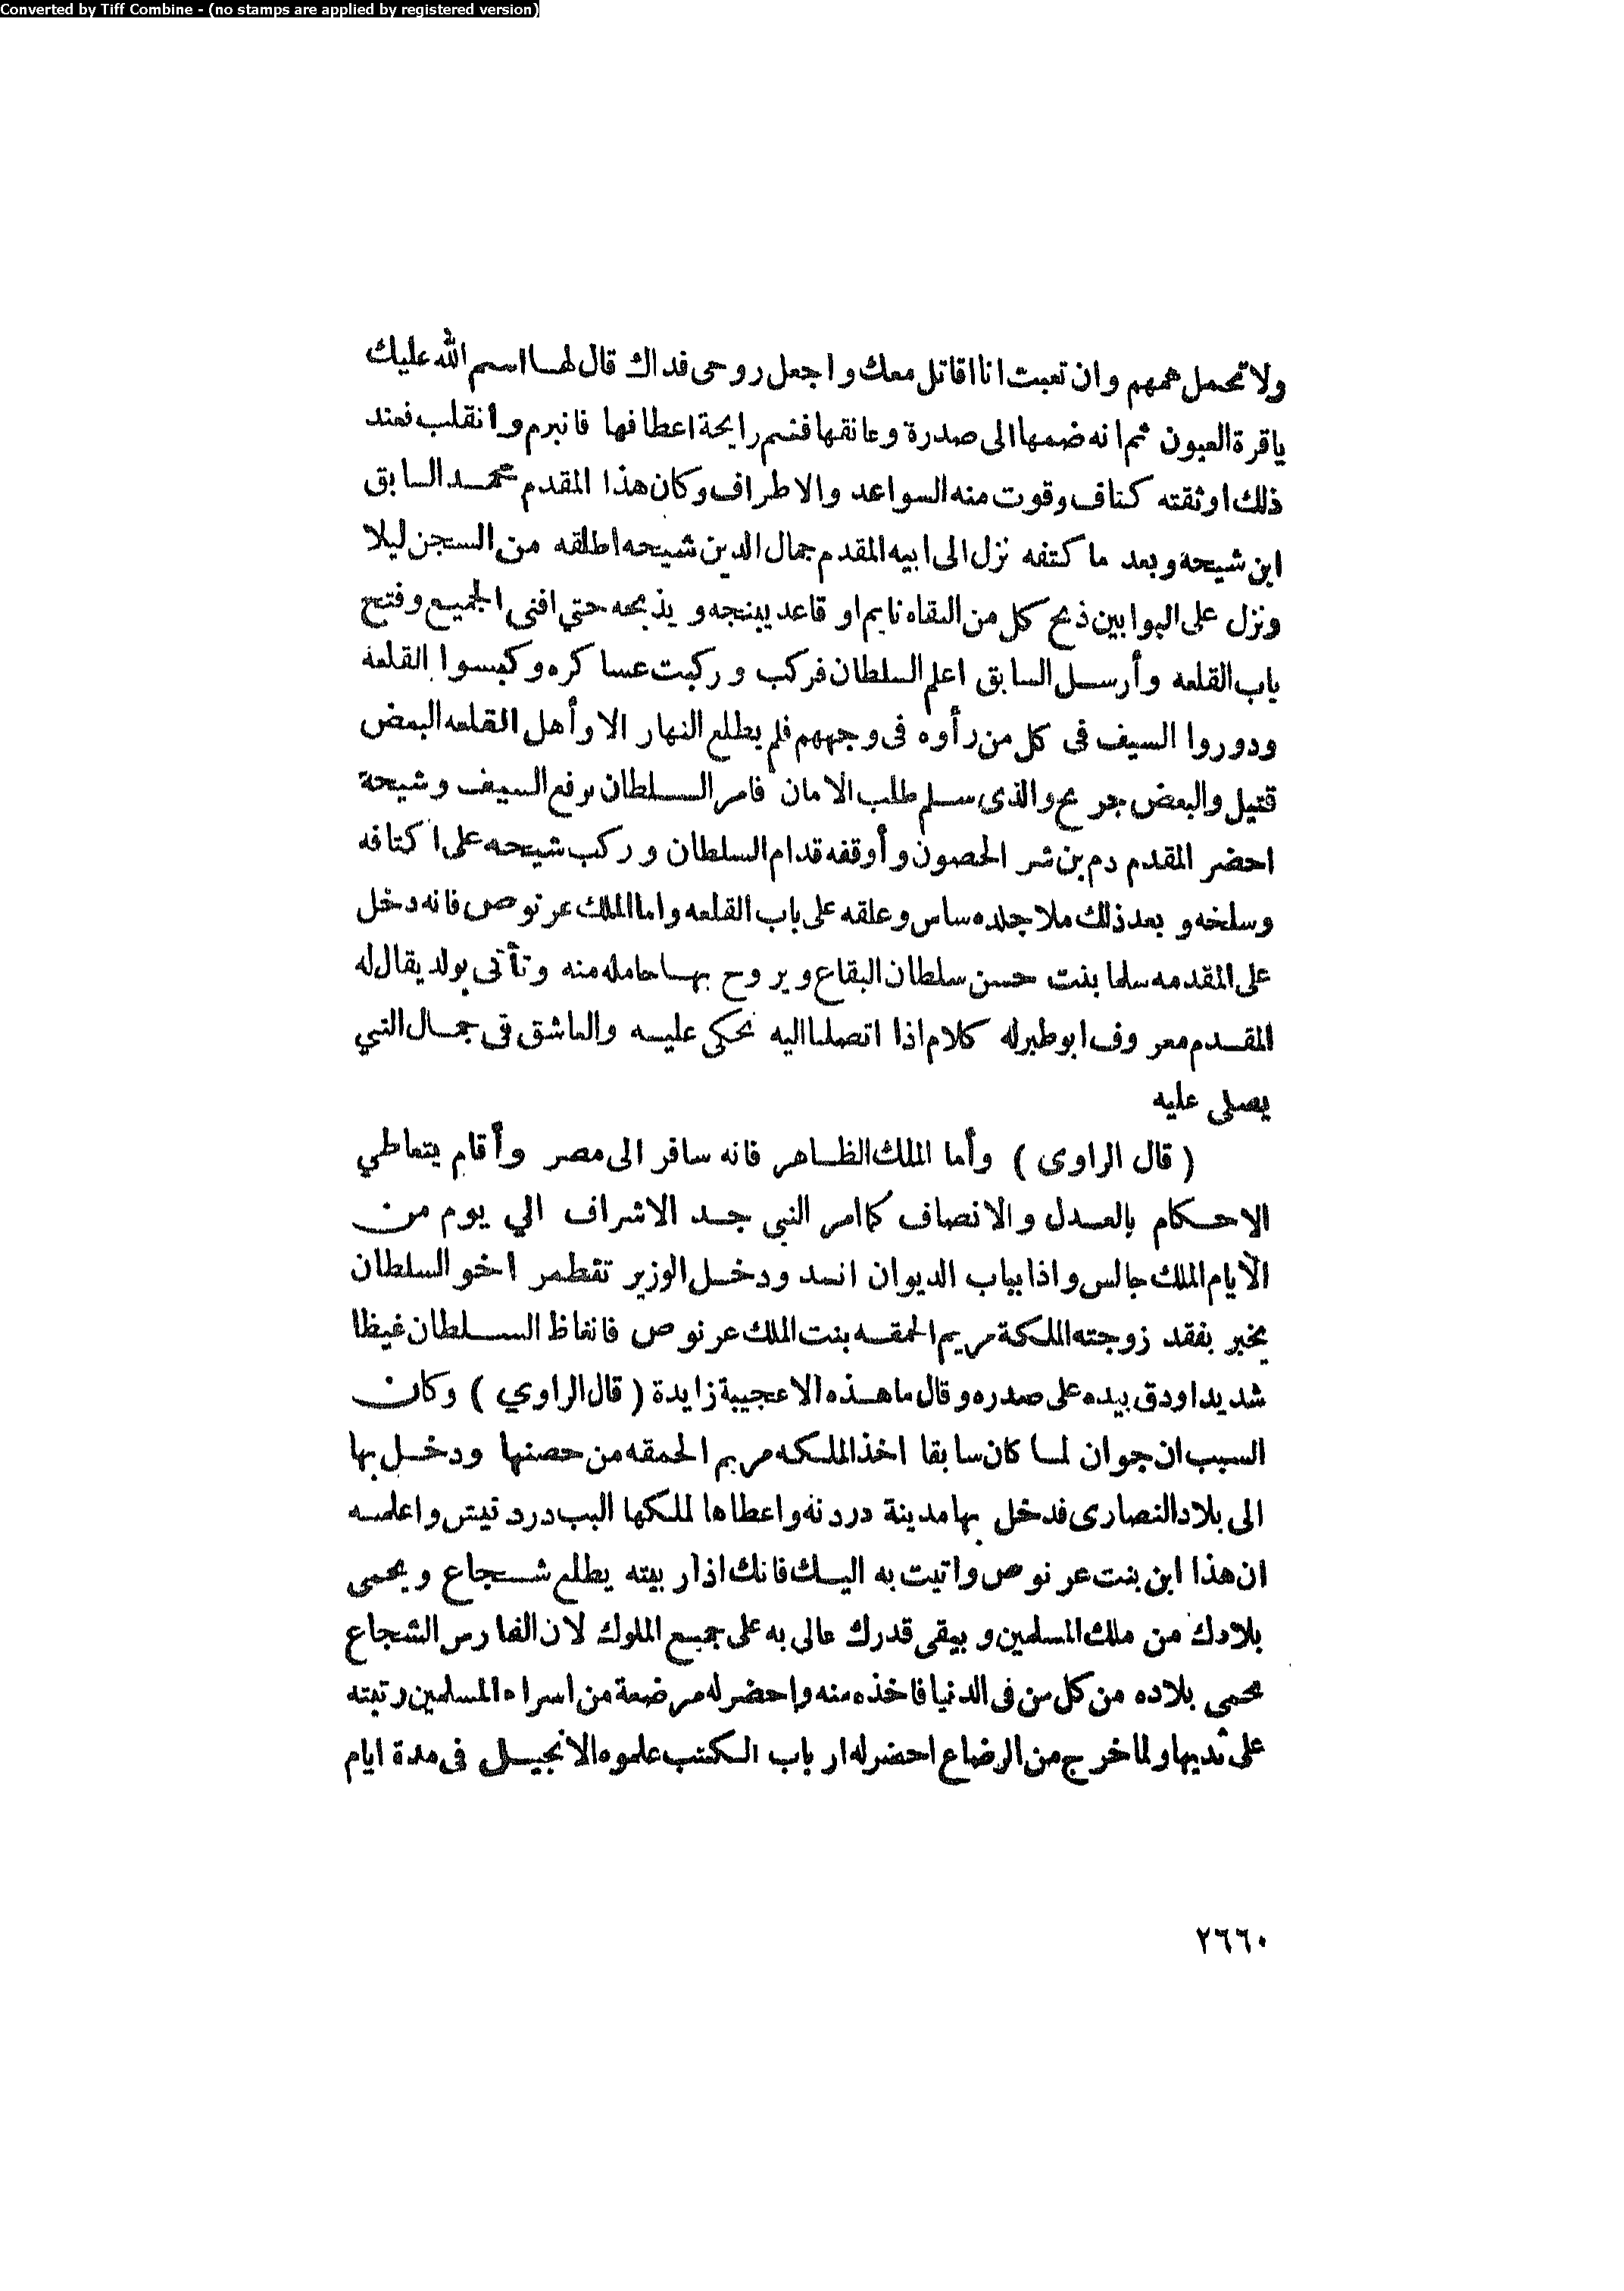 Converted by Tiff Combine - (no stamps are applied by registered version)
ولا تحمل همهم وان تعبت انا اقاتل معك واجعل روحى فداك قال لها اسم الله عليك
ياقرة العيون ثم انه ضمها الى صدرة وعانقها فشم رايحة اعطافها فانبرم وانقلب فعند
ذلك اوثقته كتاف وقوت منه السواعد والاطراف وكان هذا المقدم محمد السابق
ابن شيحه وبعد ما كتفه نزل الى ابيه المقدم جمال الدين شيحه اطلقه من السجن ليلا
ونزل على البوابين ذبح كل من التقاه نايم او قاعد يبنجه ويذبحه حتي افنى الجميع وفتح
باب القلعه وأرسل السابق اعلم السلطان فركب وركبت عساكره وكبسوا القلعة
ودوروا السيف فى كل من رأوه فى وجههم فلم يطلع النهار الا وأهل القلعه البعض
قتيل والبعض جريح والذى سلم طلب الامان فامر السلطان برفع السيف وشيحة
احضر المقدم دم بن شر الحصون وأوقفه قدام السلطان وركب شيحه على اكتافه
وسلخه وبعد ذلك ملا جلده ساس وعلقه على باب القلعه واما الملك عرنوص فانه دخل
على المقدمه سلما بنت حسن سلطان البقاع ويروح بها حامله منه وتأتى بولد يقال له
المقدم معروف ابو طبر له كلام اذا اتصلنا اليه نحكى عليه والعاشق فى جمال النبي
يصلى عليه
( قال الراوى ) وأما الملك الظاهر فانه سافر الى مصر وأقام يتعاطي
الاحكام بالعدل والانصاف كما امر النبي جد الاشراف الي يوم من
الايام الملك جالس واذا بباب الديوان انسد ودخل الوزير تقطمر اخو السلطان
يخبر بفقد زوجته الملكة مريم الحمقه بنت الملك عرنوص فانغاظ السلطان غيظا
شديدا ودق بيده على صدره وقال ما هذه الا عجيبة زايدة ( قال الراوي ) وكان
السبب ان جوان لما كان سابقا اخذ الملكه مريم الحمقه من حصنها ودخل بها
الى بلاد النصارى فدخل بها مدينة دردنه واعطاها لملكها البب دردنيش واعلمه
ان هذا ابن بنت عرنوص واتيت به اليك فانك اذا ربيته يطلع شجاع ويحمى
بلادك من ملك المسلمين ويبقى قدرك عالى به على جميع الملوك لان الفارس الشجاع
يحمى بلاده من كل من فى الدنيا فاخذه منه واحضر له مرضعة من اسراء المسلمين رتبته
على ثديها ولما خرج من الرضاع احضر له ارباب الكتب علموه الانجيل فى مدة ايام
٢٦٦٠